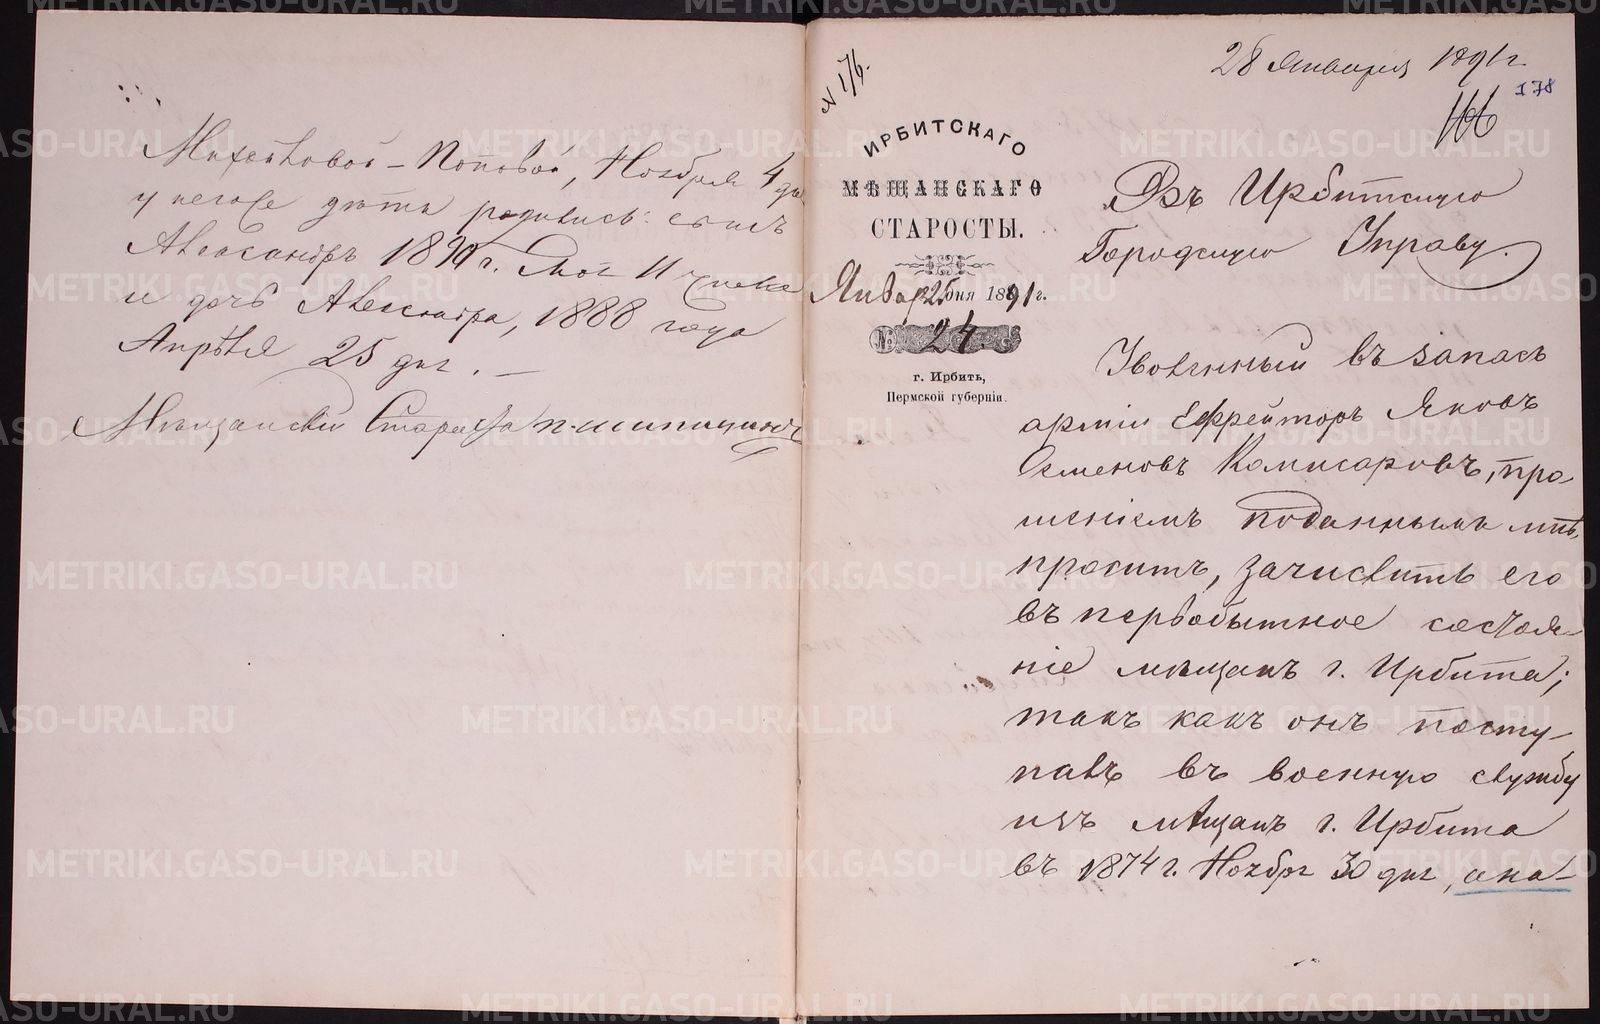 Михѣйковой-Поповой, Ноября 4 дня
у негоже дѣти родились: сынъ
Александръ 1890 г. Мая 11 числа
и дочь Александра, 1888 года
Апрѣля 25 дня. –
Мѣщанскій Староста П. Шипицинъ
№ 176.
ИРБИТСКАГО
МѢЩАНСКАГО
СТАРОСТЫ.
Января 25 дня 1891 г.
№ 24.
г. Ирбить,
Пермской губерніи.
28 Января 1891 г.
178
166
Въ Ирбитскую
Городскую Управу.
Уволенный въ запасъ
арміи Ефрейторъ Яковъ
Семеновъ Комисаровъ, про-
шеніемъ поданнымъ мнѣ,
проситъ, зачислить его
въ первобытное состоя-
ніе мѣщанъ г. Ирбита;
такъ какъ онъ посту-
палъ въ военную службу
изъ мѣщанъ г. Ирбита
въ 1874 г. Ноября 30 дня, а на-
METRIKI.GASO-URAL.RU